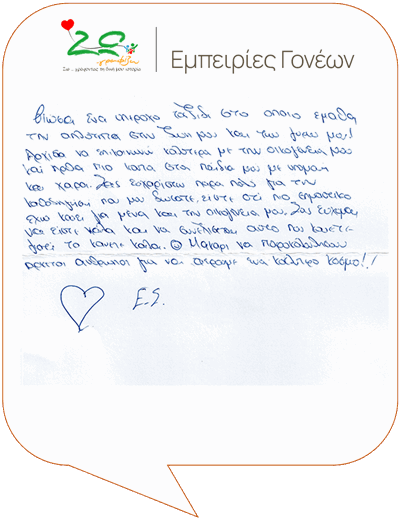 2ς
γράφοντας
Ζω ... γράφοντας τη δική μου ιστορία
Εμπειρίες Γονέων
Βίωσα ένα υπέροχο ταξίδι στο οποίο έμαθα
την απλότητα στην ζωή μου και των γύρω μου!
Αρχισα να επικοινωνώ καλύτερα με την οικογένεια μου
και ήρθα πιο κοντά στα παιδιά μου με υπομονή
και χαρά. Σας ευχαριστώ πάρα πολύ για την
καθοδήγηση που μου δώσατε, είναι ότι πιο σημαντικό
έχω κάνει για μένα και την οικογένεια μου. Σας εύχομαι
να είστε καλά και να συνεχίσετε αυτό που κάνετε
γιατί το κάνετε καλά. Μακάρι να παρακολουθήσουν
αρκετοί άνθρωποι για να ένα καλύτερο κόσμο!!
Ε.S.